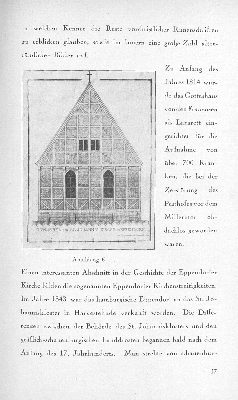 in welchen Kenner die Reste vorchristlicher Runenschriften
zu erblicken glauben, sowie im Innern eine große Zahl alter-
tümlicher Bilder auf.
Zu Anfang des
Jahres 1814 wur-
de das Gotteshaus
von den Franzosen
als Lazarett ein-
gerichtet für die
Aufnahme von
über 700 Kran-
ken, die bei der
Zerstörung des
Pesthofes vor dem
Millerntor ob-
dachlos geworden
waren.
Abbildung 6
Einen interessanten Abschnitt in der Geschichte der Eppendorfer
Kirche bilden die sogenannten Eppendorfer Kirchenstreitigkeiten.
Im Jahre 1343 war das hamburgische Eppendorf an das St. Jo-
hanniskloster in Harvestehude verkauft worden. Die Diffe-
renzen zwischen der Behörde des St. Johannisklosters und den
gräflich-schauenburgischen Landdrosten begannen bald nach dem
Anfang des 17. Jahrhunderts. Man strebte von schauenbur-
17